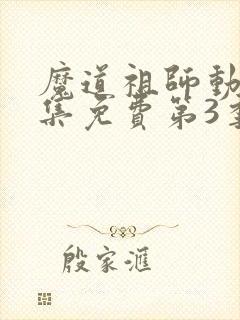 魔道祖師動
集免费第3季
殷家滙